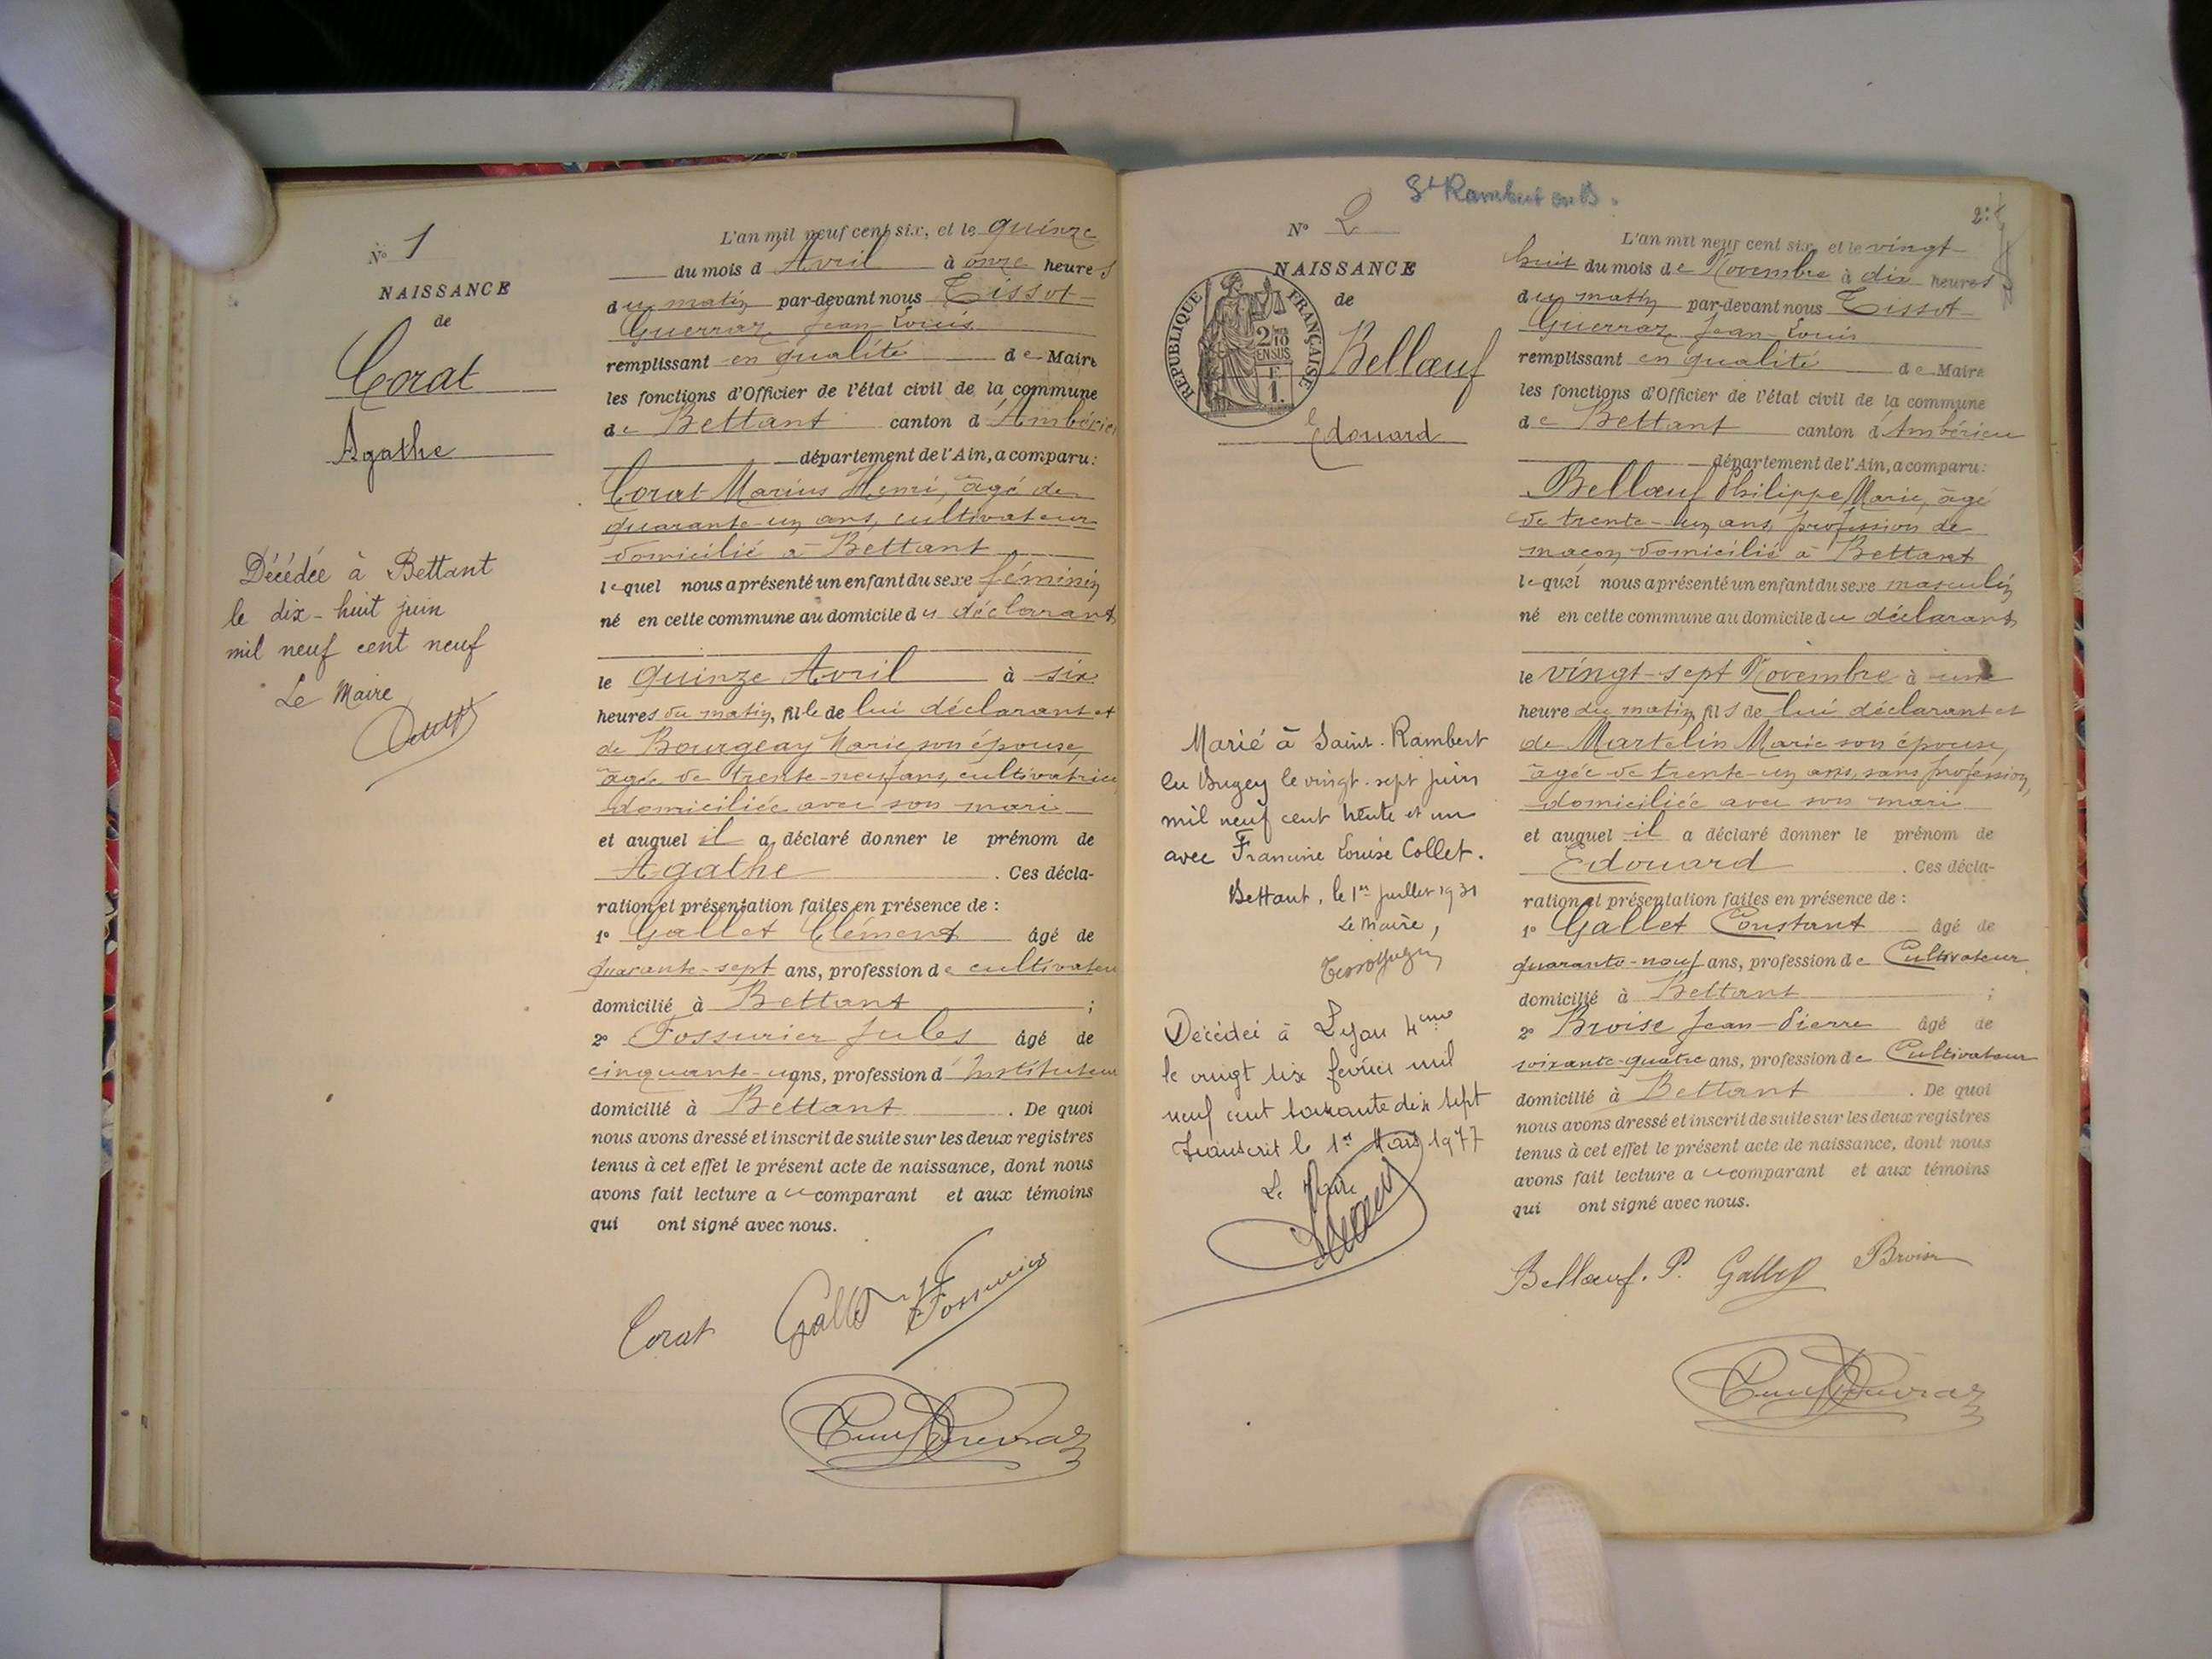 N° 1
NAISSANCE
de
Corat
Agathe
Décédée à Bettant
le dix-huit juin
mil neuf cent neuf
Le Maire
L'an mil neuf cent six, et le quinze
du mois d'Avril à onze heures
du matin par-devant nous Tissot-
Guerraz Jean-Louis
remplissant en qualité de Maire
les fonctions d'Officier de l'état civil de la commune
de Bettant canton d'Ambérieu
département de l'Ain, a comparu:
Corat Marius Henri, âgé de
quarante-un ans, cultivateur
domicilié à Bettant
lequel nous a présenté un enfant du sexe féminin
né en cette commune au domicile du déclarant
le quinze Avril à six
heures du matin, fille de lui déclarant et
de Bourgeay Marie, son épouse,
âgée de trente-neuf ans, cultivatrice
domiciliée avec son mari
et auquel il a déclaré donner le prénom de
Agathe . Ces décla-
ration et présentation faites en présence de :
1° Gallet Clément âgé de
quarante-sept ans, profession de cultivateur
domicilié à Bettant ;
2° Fossurier Jules âgé de
cinquante-un ans, profession d'Instituteur
domicilié à Bettant . De quoi
nous avons dressé et inscrit de suite sur les deux registres
tenus à cet effet le présent acte de naissance, dont nous
avons fait lecture au comparant et aux témoins
qui ont signé avec nous.
Corat Gallet Fossurier
St Rambert en B.
2
N° 2
NAISSANCE
de
REPUBLIQUE FRANÇAISE
2/10
EN SUS
F
1.
Bellœuf
Edouard
Marié à Saint-Rambert
en Bugey le vingt-sept juin
mil neuf cent trente et un
avec Francine Louise Collet.
Bettant, le 1er juillet 1931
Le Maire,
Décédé à Lyon 4eme
le vingt six février mil
neuf cent soixante dix sept
Transcrit le 1er Mars 1977
Le Maire
L'an mil neuf cent six, et le vingt-
huit du mois de Novembre à dix heures
du matin par-devant nous Tissot-
Guerraz Jean-Louis
remplissant en qualité de Maire
les fonctions d'Officier de l'état civil de la commune
de Bettant canton d'Ambérieu
département de l'Ain, a comparu:
Bellœuf Philippe Marie, âgé
de trente-un ans, profession de
maçon, domicilié à Bettant
lequel nous a présenté un enfant du sexe masculin
né en cette commune au domicile du déclarant
le vingt-sept Novembre à une
heure du matin, fils de lui déclarant et
de Martelin Marie son épouse,
âgée de trente-un ans, sans profession,
domiciliée avec son mari
et auquel il a déclaré donner le prénom de
Edouard . Ces décla-
ration et présentation faites en présence de :
1° Gallet Constant âgé de
quarante-neuf ans, profession de Cultivateur
domicilié à Bettant ;
2° Broise Jean-Pierre âgé de
soixante-quatre ans, profession de Cultivateur
domicilié à Bettant . De quoi
nous avons dressé et inscrit de suite sur les deux registres
tenus à cet effet le présent acte de naissance, dont nous
avons fait lecture au comparant et aux témoins
qui ont signé avec nous.
Bellœuf. P. Gallet Broise